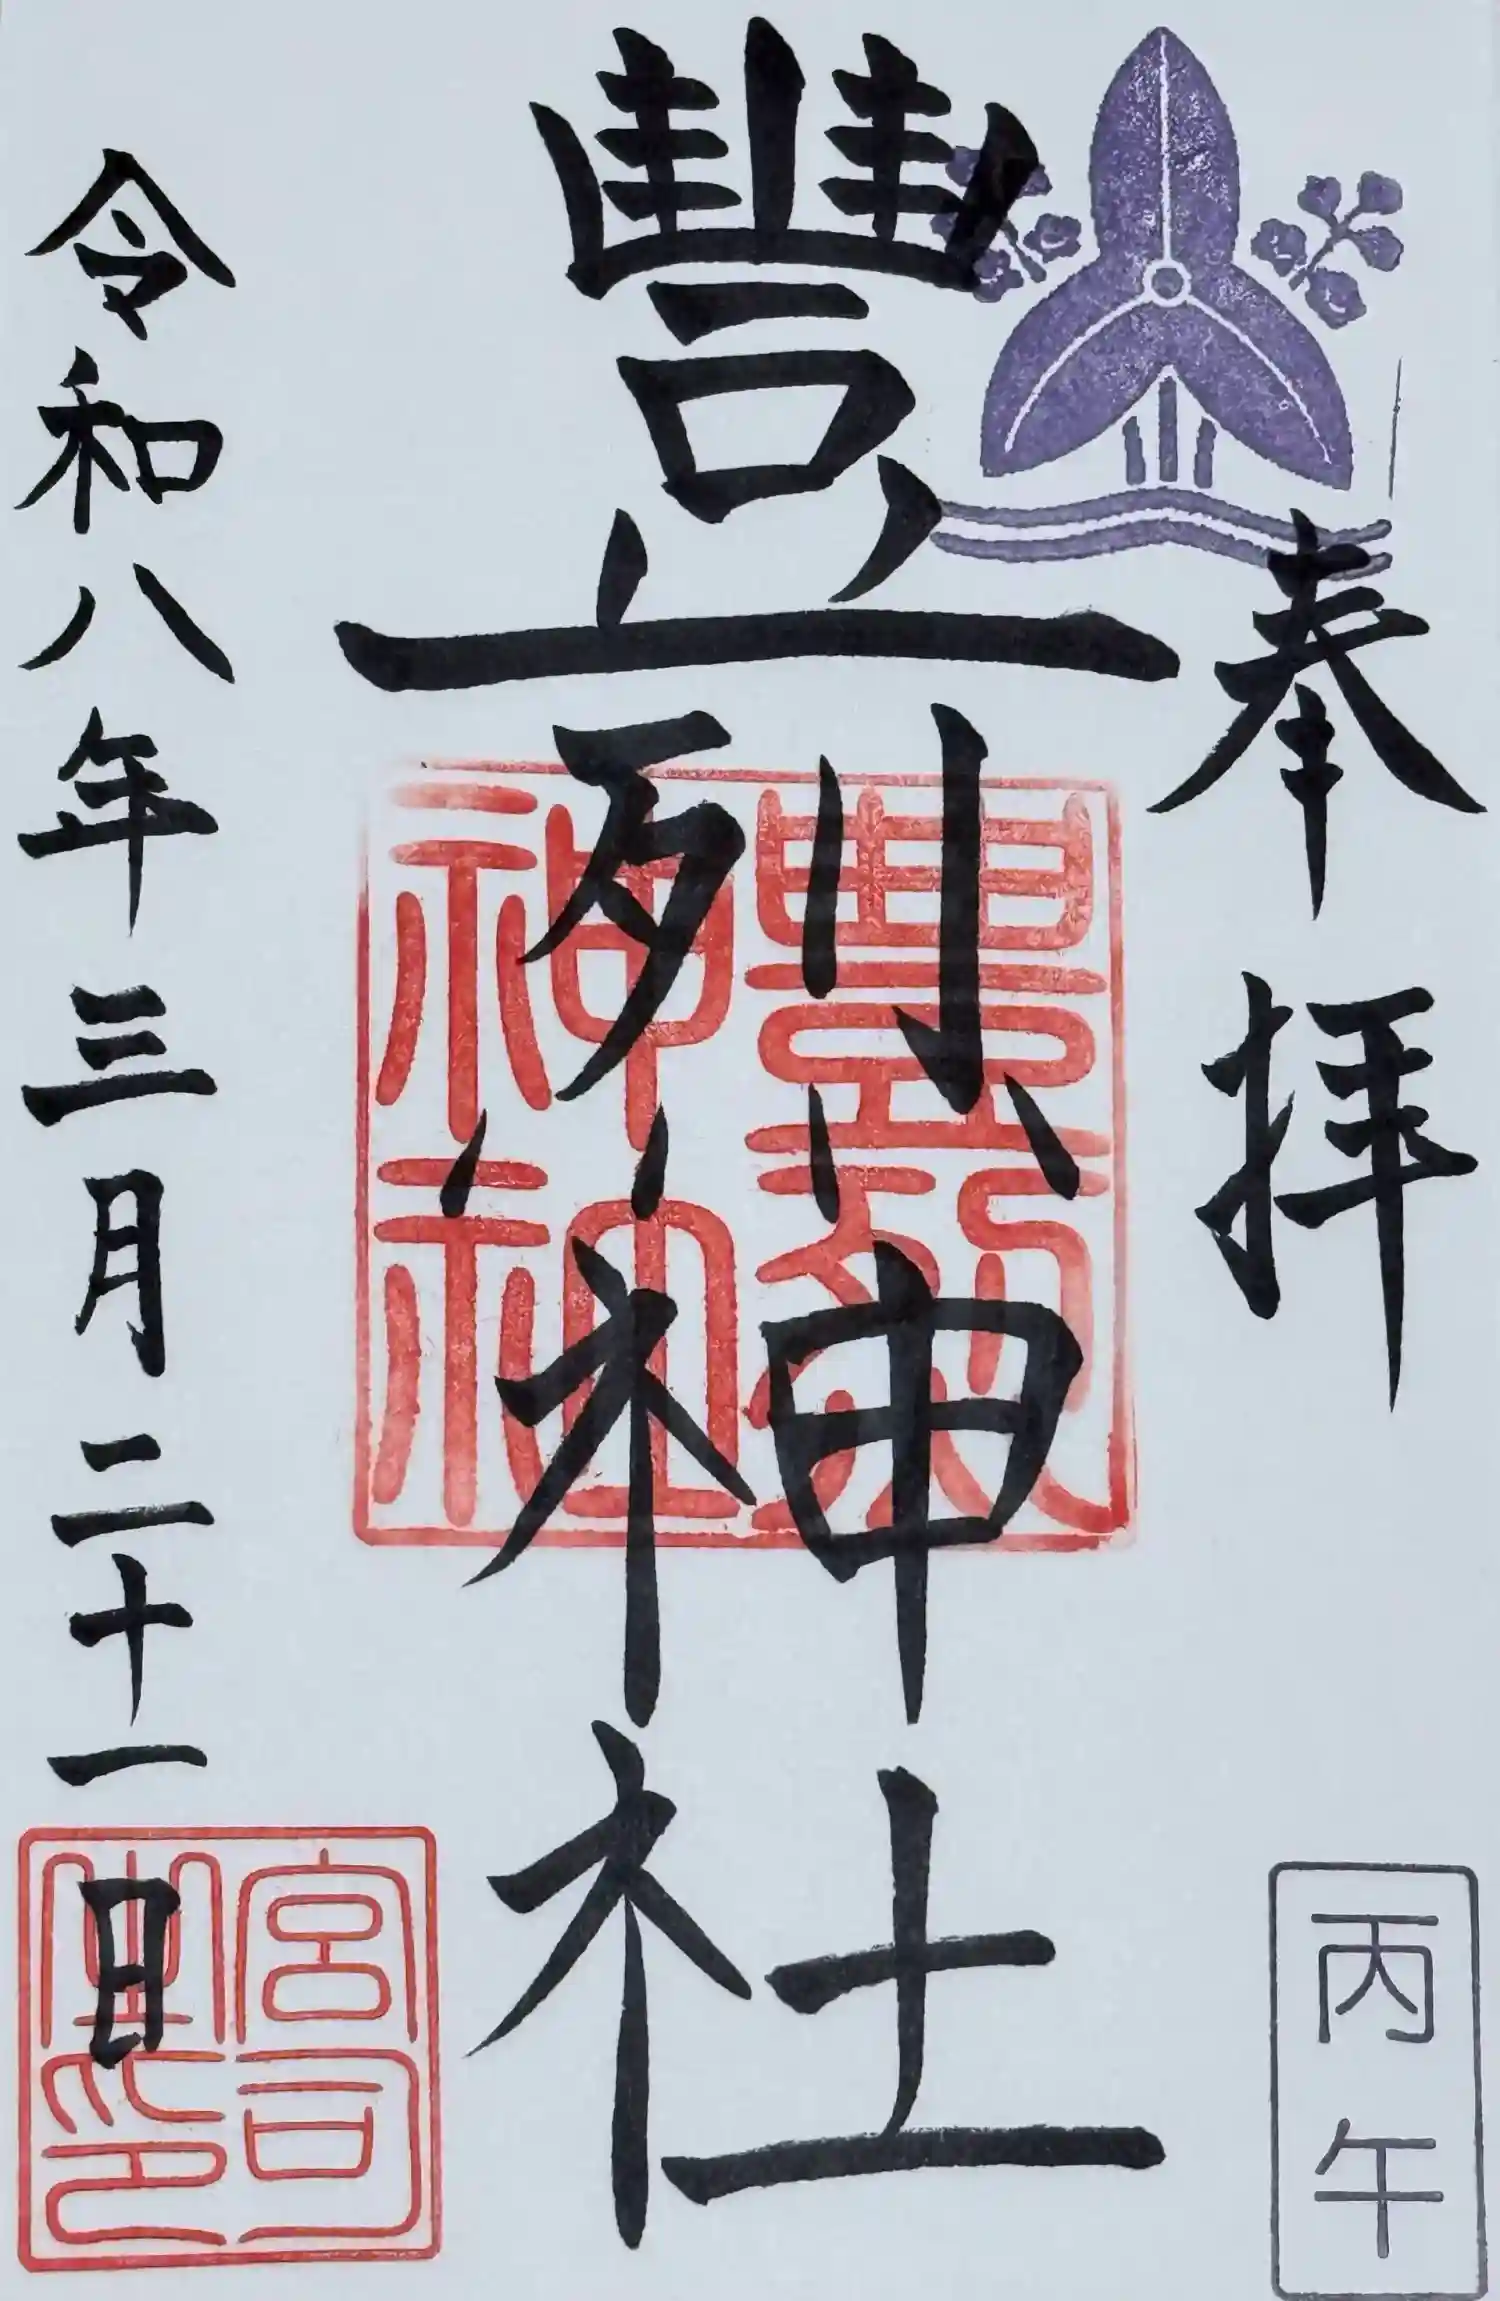 奉拝
丙午
豐烈神社
豊烈
神社
令和八年三月二十一日
宮司
之印